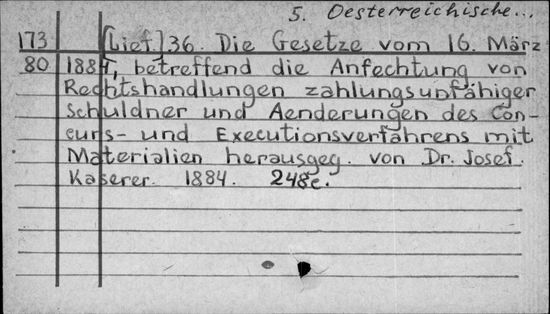 5. Oesterreichische...
173 [Lief.] 36. Die Gesetze vom 16. März
80 1884, betreffend die Anfechtung von
Rechtshandlungen zahlungsunfähiger
Schuldner und Aenderungen des Con-
curs- und Executionsverfahrens mit
Materialien herausgeg. von Dr. Josef.
Kaserer. 1884. 248c.